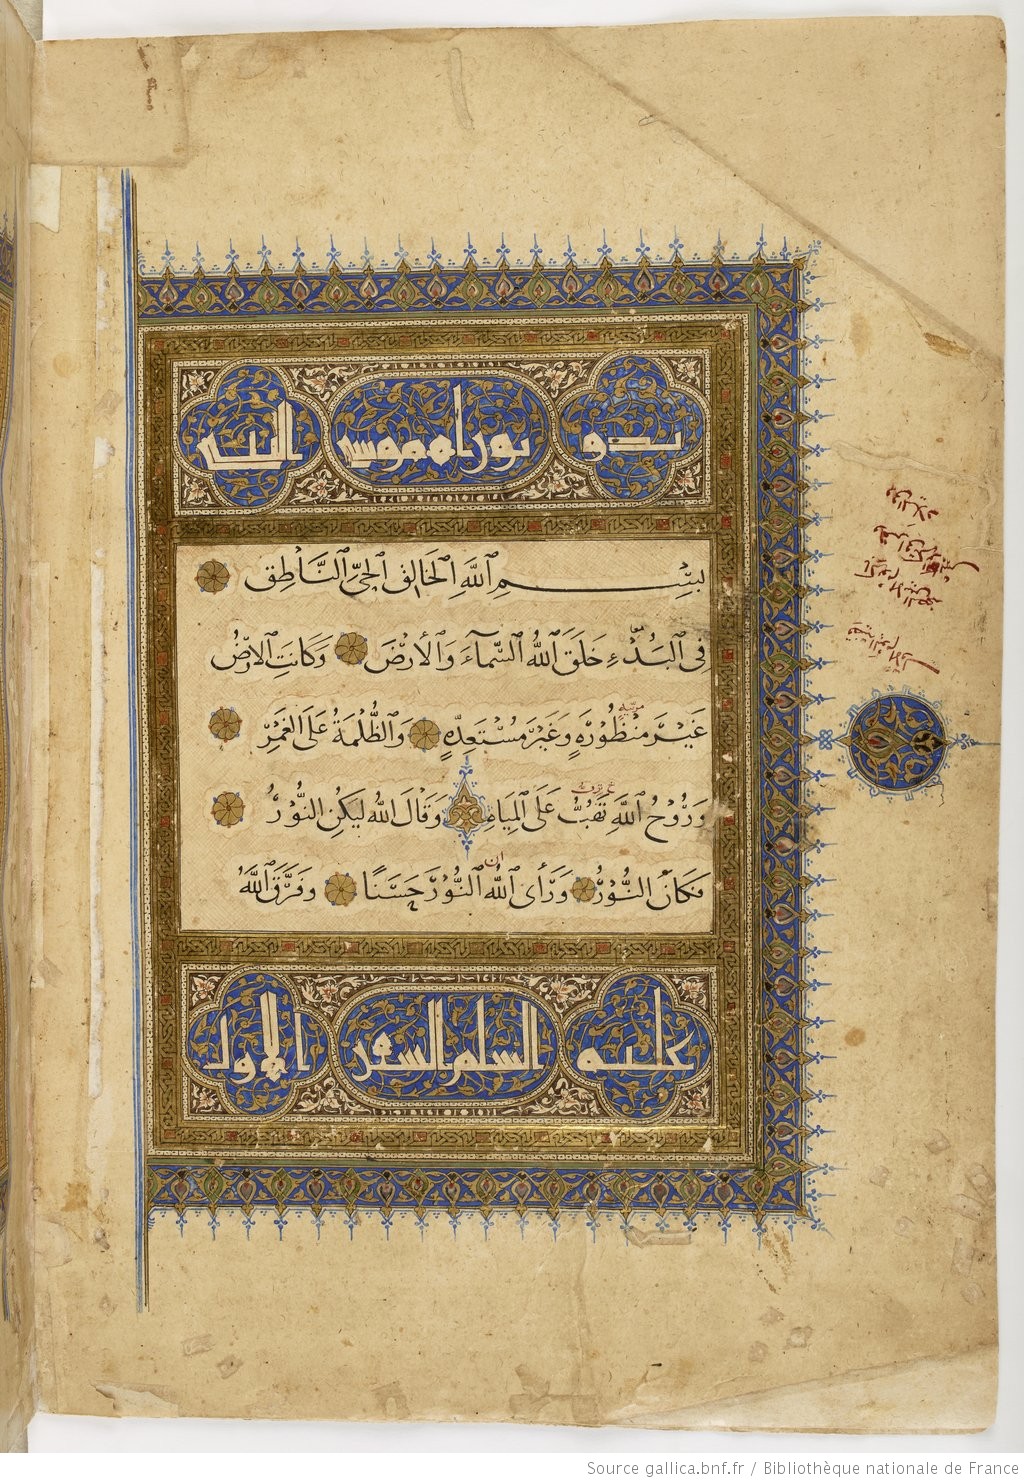 بدو توراه موسى النبي
بِسْمِ ٱللَّهِ ٱلْخَالِقِ ٱلْحَيِّ ٱلنَّاطِقِ
فِى ٱلْبَدْءِ خَلَقَ ٱللَّهُ ٱلسَّمَآءَ وَٱلْأَرْضَ وَكَانَتِ ٱلْأَرْضُ
غَيْرَ مَنْظُورَةٍ وَغَيْرَ مُسْتَعِدَّةٍ وَٱلظُّلْمَةُ عَلَى ٱلْغَمْرِ
وَرُوْحُ ٱللَّهِ تَهُبُّ عَلَى ٱلْمِيَاهِ وَقَالَ ٱللَّهُ لِيَكُنِ ٱلنُّوْرُ
فَكَانَ ٱلنُّوْرُ وَرَأَى ٱللَّهُ ٱلنُّوْرَ حَسَنًا وَفَرَّقَ ٱللَّهُ
ان
عليه السلم السفر الاول
Source gallica.bnf.fr / Bibliothèque nationale de France